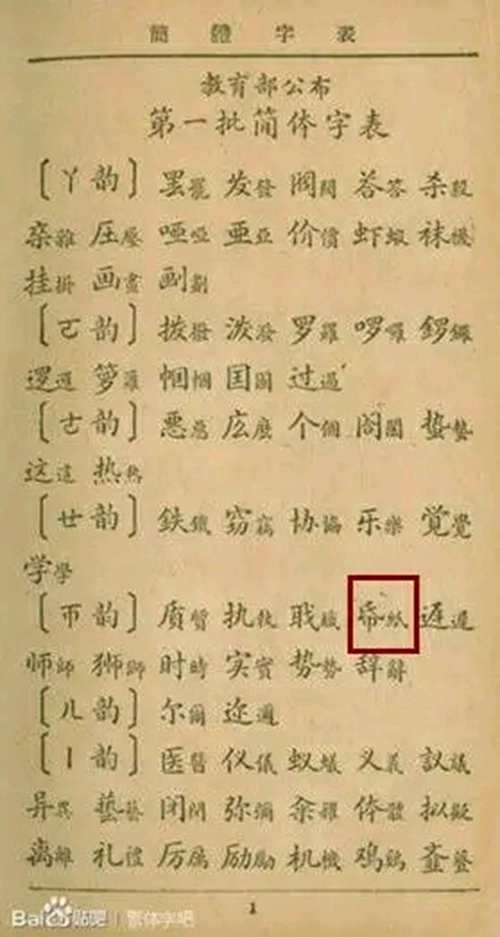 簡體字表
教育部公布
第一批简体字表
〔ㄚ韵〕罢罷 发發 阀閥 荅答 杀殺
杂雜 压壓 哑啞 亚亞 价價 虾蝦 袜襪
挂掛 画畫 划劃
〔ㄛ韵〕拨撥 泼潑 罗羅 啰囉 锣鑼
逻邏 箩籮 帼幗 国國 过過
〔ㄜ韵〕恶惡 庅麽 个個 阁閣 蛰蟄
这這 热熱
〔ㄝ韵〕鉄鐵 窃竊 协協 乐樂 觉覺
学學
〔ㄭ韵〕质質 执執 职職 帋紙 迟遲
师師 狮獅 时時 实實 势勢 辞辭
〔ㄦ韵〕尔爾 迩邇
〔ㄧ韵〕医醫 仪儀 蚁蟻 义義 议議
异異 藝 闭閉 弥彌 籴糴 体體 拟擬
离離 礼禮 厉厲 励勵 机機 鸡鷄 齑
1
Bai 贴吧 | 繁体字吧